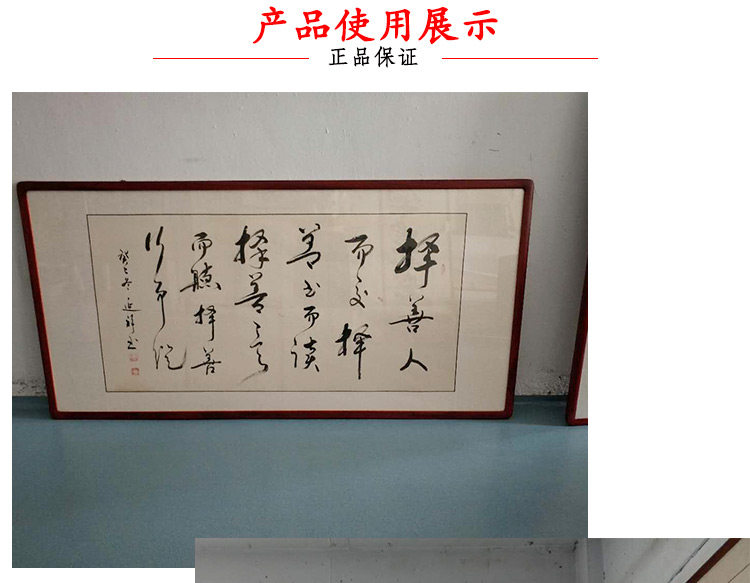 产品使用展示
正品保证
择善人
而交择
善书而读
择善言
而听择善
行而从
癸巳冬
书